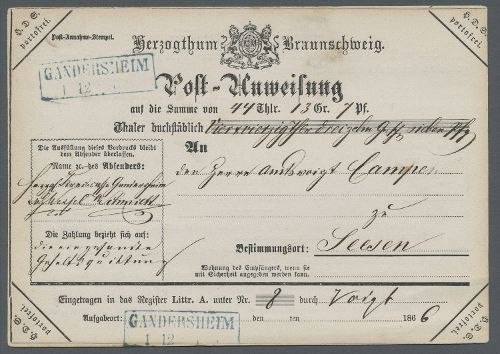 H. D. S. portofrei.
H. D. S. portofrei.
Post-Annahme-Stempel.
Herzogthum Braunschweig.
GANDERSHEIM
1 12
Post-Anweisung
auf die Summe von 44 Thlr. 13 Gr. 7 Pf.
Thaler buchstäblich Vierundvierzig Thlr dreizehn Gr sieben Pfg
Die Ausfüllung dieses Vordrucks bleibt
dem Absender überlassen.
Name ec. des Absenders:
An
den Herrn Amtsvoigt Campe
zu
Die Zahlung bezieht sich auf:
die eingesandte
Gehaltsquittung
Bestimmungsort: Seesen
Wohnung des Empfängers, wenn sie
mit Sicherheit angegeben werden kann.
Eingetragen in das Register Littr. A. unter Nr. 8 durch Voigt
Aufgabeort: GANDERSHEIM den ten 1866
1 12
H. D. S. portofrei.
H. D. S. portofrei.